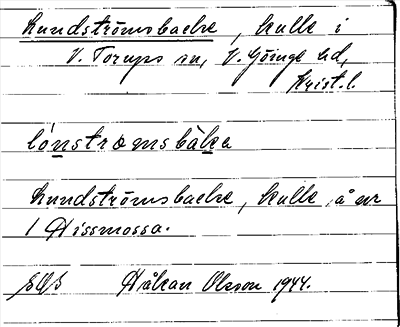 Lundströmsbacke, kulle i
V. Torups sn, V. Göinge hd,
Krist. l.
lónstromsbàka
Lundströmsbacke, kulle å nr
1 Hissmossa.
Håkan Olsson 1944.